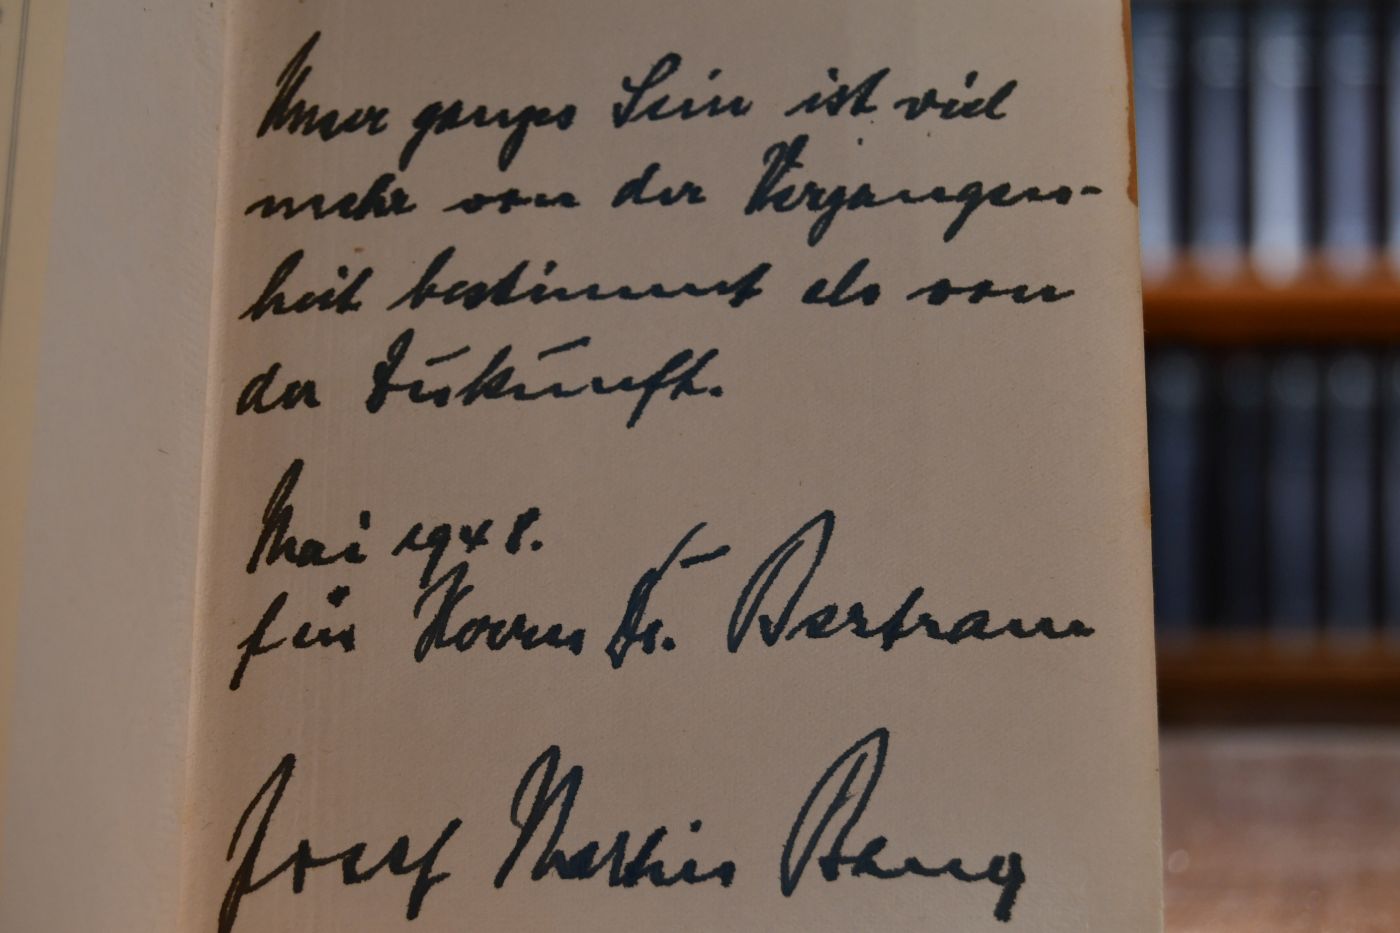 Unser ganzes Sein ist viel
mehr von der Vergangen-
heit bestimmt als von
der Zukunft.
Mai 1948.
für Herrn Dr. Bertram
Josef Martin